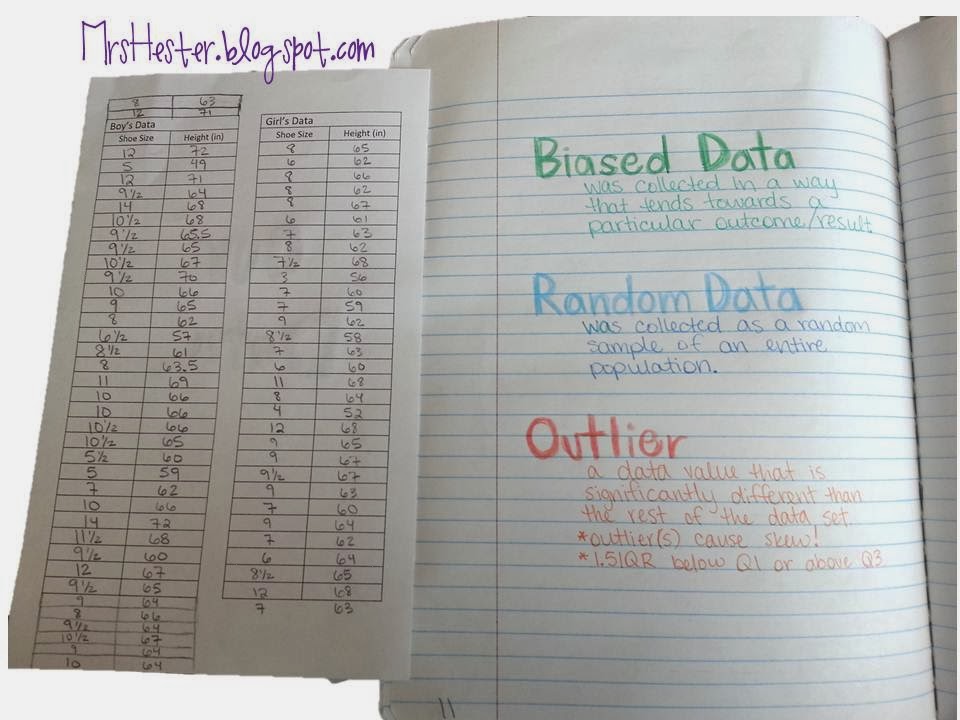 MrsHester.blogspot.com
8 63
12 71
Boy's Data
Shoe Size Height (in)
12 72
5 49
12 71
9½ 64
14 68
10½ 68
9½ 65.5
9½ 65
10½ 67
9½ 70
10 66
9 65
8 62
6½ 57
8½ 61
8 63.5
11 69
10 66
10 66
10½ 66
10½ 65
5½ 60
5 59
7 62
10 66
14 72
11½ 68
9½ 60
12 67
9½ 65
9 64
8 66
9½ 64
10½ 67
9 64
10 64
Girl's Data
Shoe Size Height (in)
8 65
6 62
8 66
8 62
8 67
6 61
7 63
8 62
7½ 68
3 56
7 60
7 59
9 62
8½ 58
7 63
6 60
11 68
8 64
4 52
12 68
9 65
9 67
9½ 67
9 63
7 60
9 64
7 62
6 64
8½ 65
12 68
7 63
Biased Data
was collected in a way
that tends towards a
particular outcome/result
Random Data
was collected as a random
sample of an entire
population.
Outlier
a data value that is
significantly different than
the rest of the data set.
*outlier(s) cause skew!
*1.5IQR below Q1 or above Q3
11